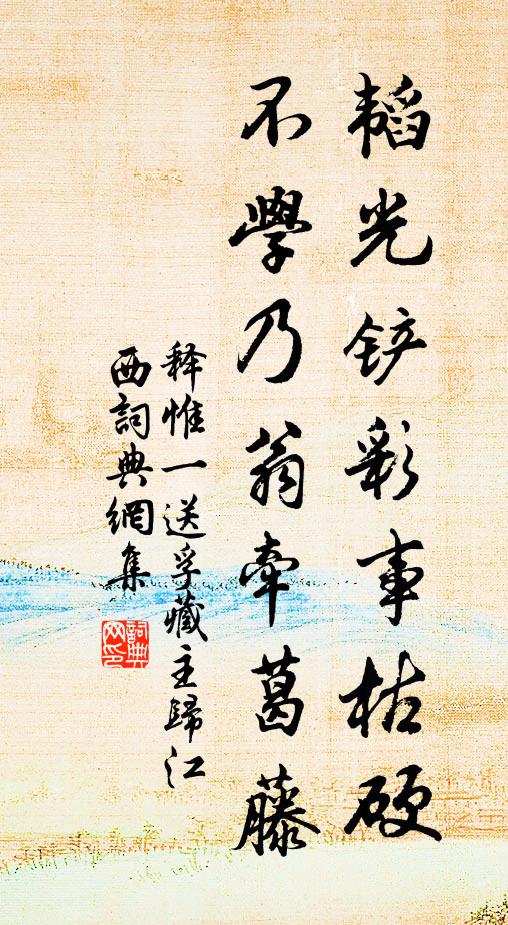 韬光铲彩事枯硬
不學乃翁牵葛藤
释惟一送孚藏主歸江
西詞典網集
詞典
网印